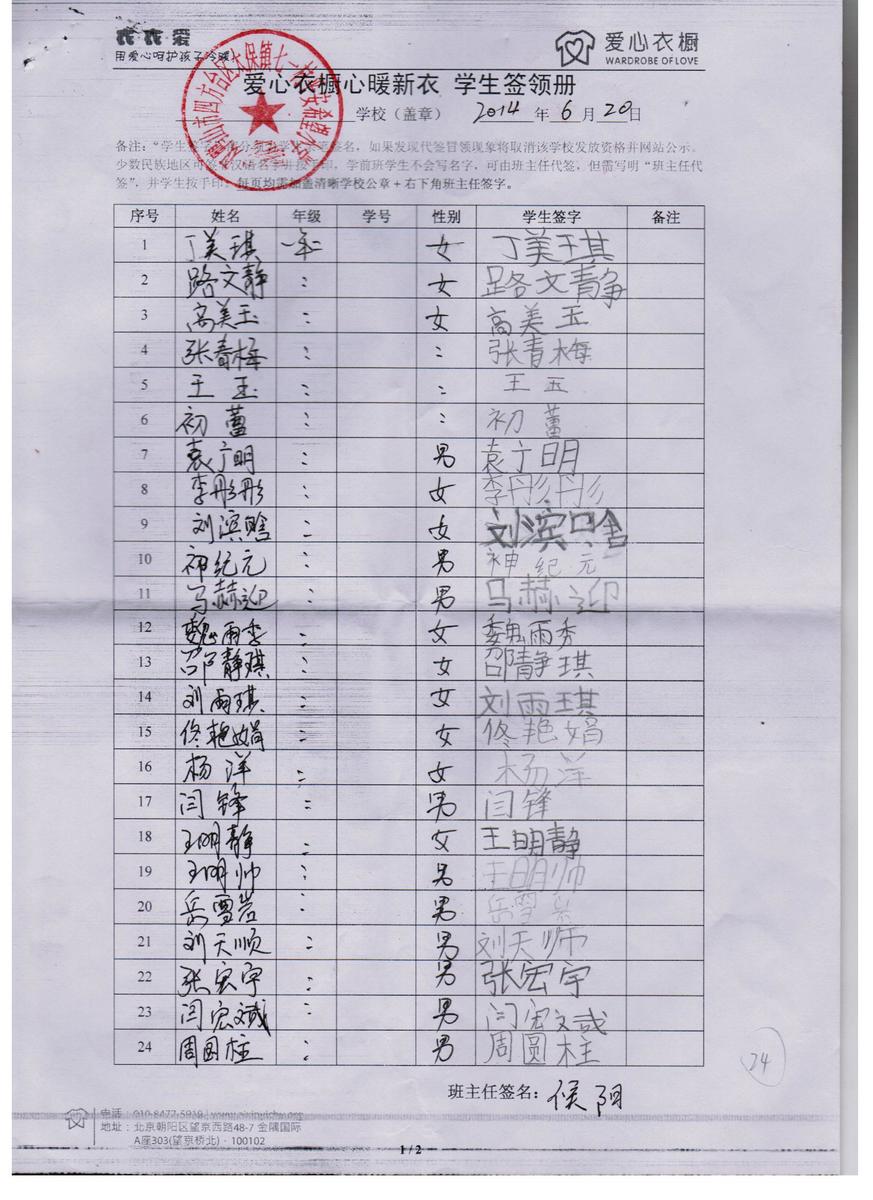 衣衣爱
用爱心呵护孩子冷暖
爱心衣橱
WARDROBE OF LOVE
爱心衣橱心暖新衣 学生签领册
学校（盖章） 2014 年 6 月 20 日
备注：“学生
签名，如果发现代签冒领现象将取消该学校发放资格并网站公示。
少数民族地区可
并按手印，学前班学生不会写名字，可由班主任代签，但需写明“班主任代
签”，并学生按手印。每页均需加盖清晰学校公章+右下角班主任签字。
序号 姓名 年级 学号 性别 学生签字 备注
1 丁美琪 一年 女 丁美琪
2 路文静 : 女 路文静
3 高美玉 : 女 高美玉
4 张春梅 : : 张青梅
5 王玉 : : 王玉
6 初蕾 : : 初
7 袁广明 : 男 袁宁明
8 李彤彤 : 女 李彤彤
9 刘滨晗 : 女 刘滨晗
10 神纪元 : 男 神纪元
11 马赫迎 : 男 马赫迎
12 魏雨季 : 女 魏雨秀
13 邵静琪 : 女 邵静琪
14 刘雨琪 : 女 刘雨琪
15 佟艳娟 : 女 佟艳娟
16 杨洋 : 女 杨洋
17 闫锋 : 男 闫锋
18 王明静 : 女 王明静
19 王明帅 : 男 王明帅
20 岳雪岩 : 男 岳雪岩
21 刘天顺 : 男 刘天师
22 张宏宇 : 男 张宏宇
23 闫宏斌 : 男 闫宏
24 周圆柱 : 男 周圆柱
24
班主任签名：侯阳
电话：010-8477-5919
地址：北京朝阳区望京西路48-7 金隅国际
A座303(望京桥北)·100102
1 / 2